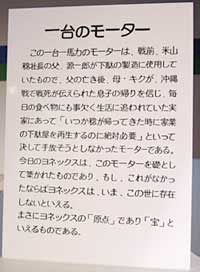 一台のモーター
この一台一馬力のモーターは、戦前、米山
稔社長の父、源一郎が下駄の製造に使用して
いたもので、父の亡き後、母・キクが、沖縄
戦で戦死が伝えられた息子の帰りを信じ、毎
日の食べ物にも事欠く生活に追われていた実
家にあって「いつか稔が帰ってきた時に家業
の下駄屋を再生するのに絶対必要」といって
決して手放そうとしなかったモーターである。
今日のヨネックスは、このモーターを礎とし
て築かれたものであり、もし、これがなかっ
たならばヨネックスは、いま、この世に存在
しないといえる。
まさにヨネックスの「原点」であり「宝」と
いえるものである。